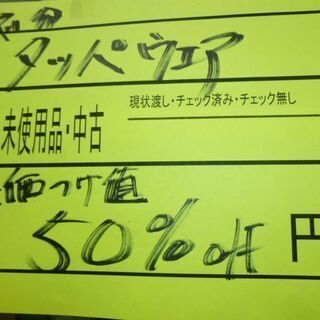 タッパウエア
現状渡し・チェック済み・チェック無し
未使用品・中古
値つけ値
50%off 円